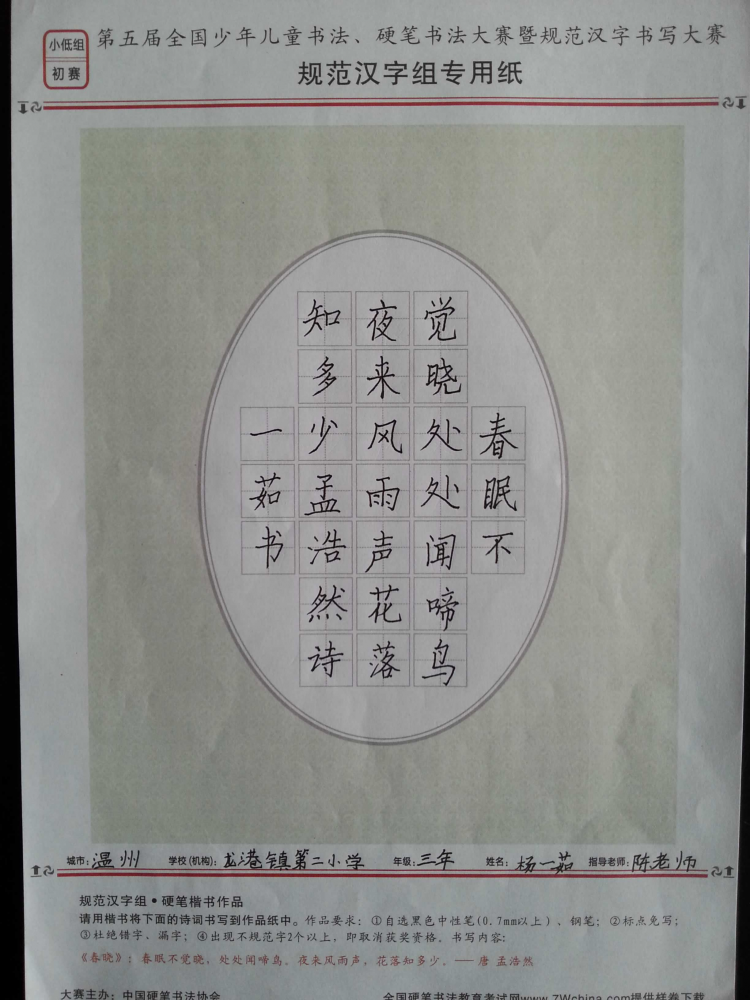 小低组
初赛
第五届全国少年儿童书法、硬笔书法大赛暨规范汉字书写大赛
规范汉字组专用纸
春眠不
觉晓处处闻啼鸟
夜来风雨声花落
知多少孟浩然诗
一茹书
城市:温州 学校(机构):龙港镇第二小学 年级:三年 姓名:杨一茹 指导老师:陈老师
规范汉字组•硬笔楷书作品
请用楷书将下面的诗词书写到作品纸中。作品要求:①自选黑色中性笔(0.7mm以上)、钢笔;②标点免写;
③杜绝错字、漏字;④出现不规范字2个以上,即取消获奖资格。书写内容:
《春晓》:春眠不觉晓,处处闻啼鸟。夜来风雨声,花落知多少。——唐 孟浩然
大赛主办:中国硬笔书法协会 全国硬笔书法教育考试网www.7Wchina.com提供样卷下载